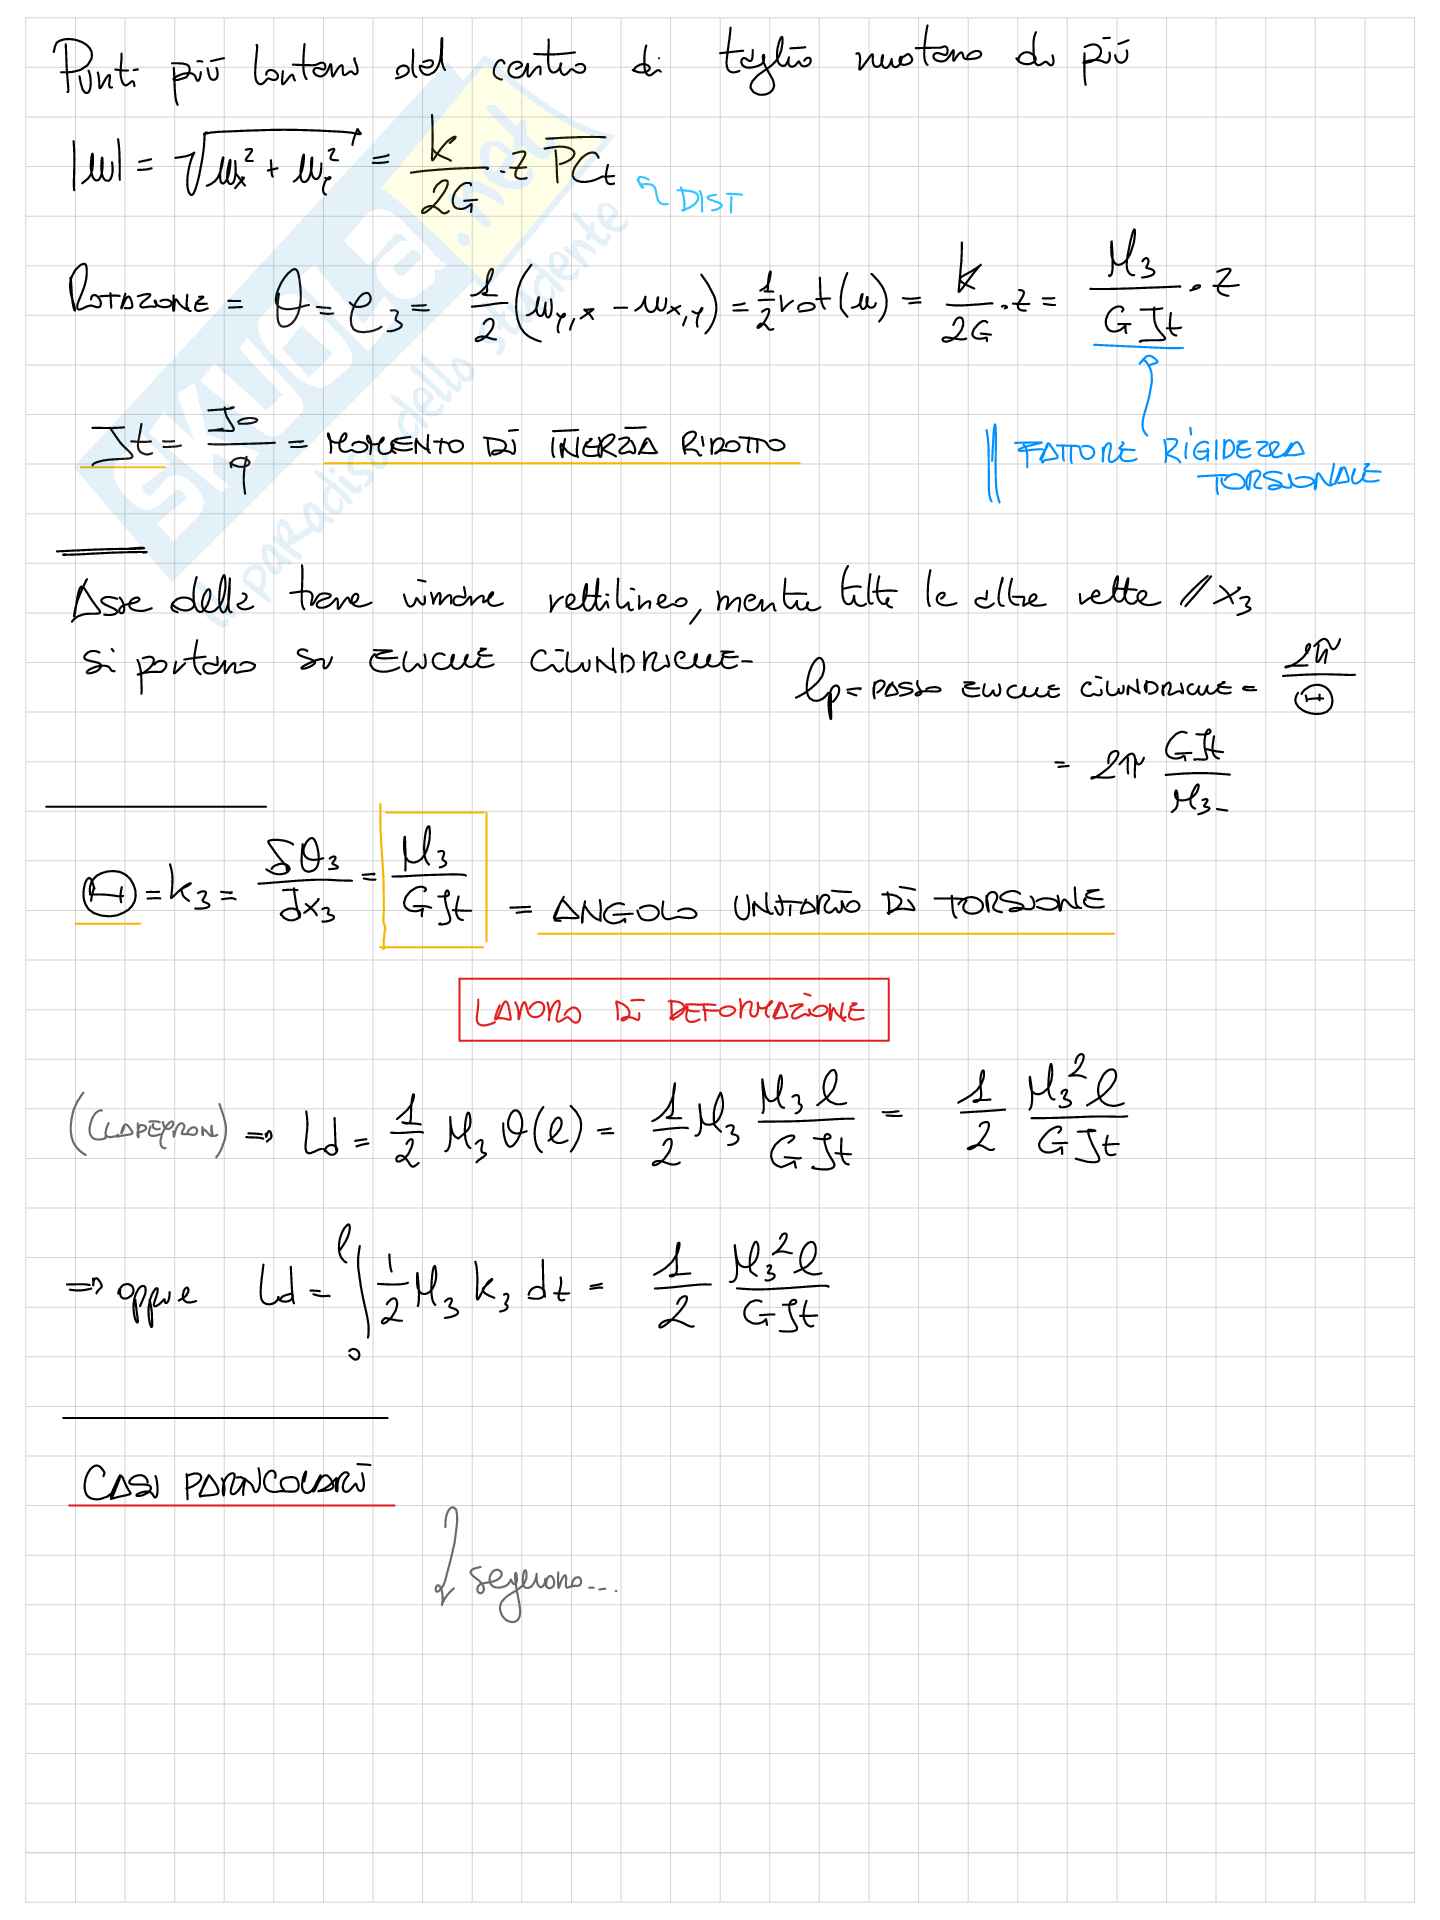 Punti più lontani dal centro di taglio ruotano di più
|u| = √(ux² + uy²) = k/2G · z P̅C̅t
DIST
ROTAZIONE = θ = e3 = 1/2 (uy,x - ux,y) = 1/2 rot(u) = k/2G · z = M3/GJt · z
Jt = Jo/q = MOMENTO DI INERZIA RIDOTTO
FATTORE RIGIDEZZA TORSIONALE
Asse della trave rimane rettilineo, mentre tutte le altre rette // x3
si portano su ELICHE CILINDRICHE-
lp = PASSO ELICHE CILINDRICHE = 2π/Θ
= 2π GJt/M3
Θ = k3 = δθ3/δx3 = M3/GJt = ANGOLO UNITARIO DI TORSIONE
LAVORO DI DEFORMAZIONE
(CLAPEYRON) => Ld = 1/2 M3 θ(l) = 1/2 M3 M3 l/GJt = 1/2 M3² l/GJt
=> oppure Ld = ∫0^l 1/2 M3 k3 dt = 1/2 M3² l/GJt
CASI PARTICOLARI
seguono...
SKUOLA.net
il paradiso dello studente